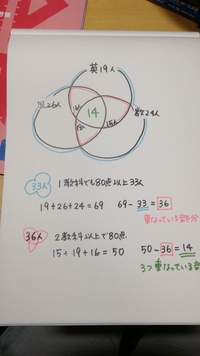 英19人
国26人
数24人
19人
14
16人
15人
33人 1教科でも80点以上33人
19+26+24=69 69-33=36
重なっている部分
36人 2教科以上で80点
15+19+16=50 50-36=14
3つ重なっている部分